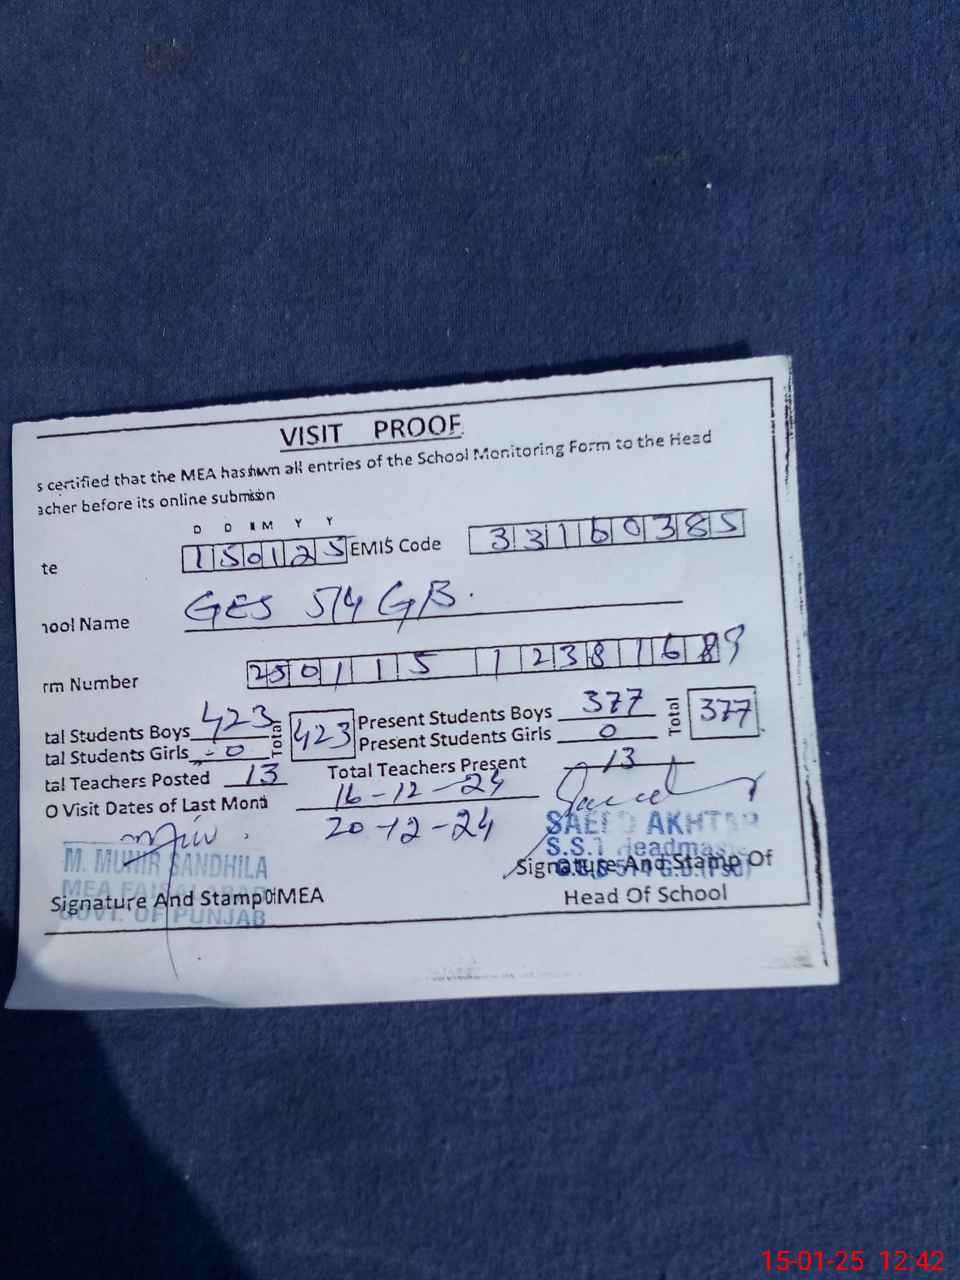 VISIT PROOF
s certified that the MEA has shwn all entries of the School Monitoring Form to the Head
acher before its online submision
D D M M Y Y
te 150125 EMIS Code 33160385
hool Name GES 574 GB.
rm Number 250115 1238168
tal Students Boys 423 Total 423 Present Students Boys 377 Total 377
tal Students Girls 0 Present Students Girls 0
tal Teachers Posted 13 Total Teachers Present 13
O Visit Dates of Last Mond 16-12-24
20-12-24
M. MUNIR SANDHILA
MEA FAISALABAD
GOVT. OF PUNJAB
Signature And Stamp Of MEA
SAEED AKHTAR
S.S.T Headmaster
G.E.S 574 G.B.(FSD)
Signature And Stamp Of
Head Of School
15-01-25 12:42